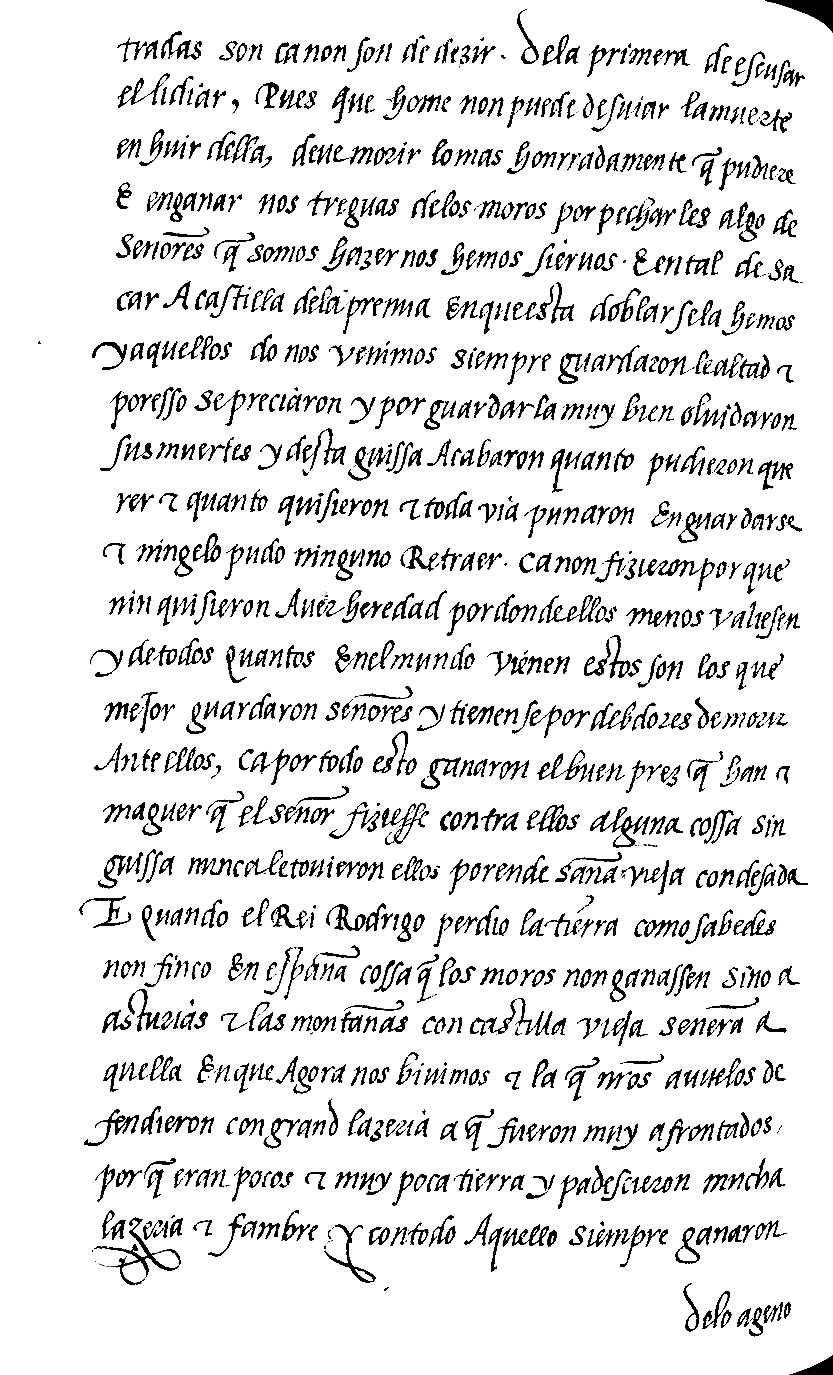 tradas son ca non son de dezir. Dela primera de escusar
el lidiar, Pues que home non puede desuiar la muerte
en huir della, deue morir lo mas honrradamente q̃ pudiere
E enganar nos treguas delos moros por pecharles algo de
Señores q̃ somos hazer nos hemos sieruos. E en tal de sa
car A castilla dela premia En que esta doblar se la hemos
y aquellos do nos venimos siempre guardaron lealtad &
por esso se preciaron y por guardarla muy bien oluidaron
sus muertes y desta guissa Acabaron quanto pudieron que
rer & quanto quisieron & toda via punaron En guardarse
& nin gelo pudo ninguno Retraer. ca non fizieron por que
nin quisieron Auer heredad por donde ellos menos valiesen
y de todos quantos En el mundo vienen estos son los que
mejor guardaron señores y tienense por debdores de morir
Ante ellos, ca por todo esto ganaron el buen prez q̃ han &
maguer q̃ el señor fiziesse contra ellos alguna cossa sin
guissa nunca le touieron ellos porende saña vieja condesada
E quando el Rei Rodrigo perdio la tierra como sabedes
non finco En españa cossa q̃ los moros non ganassen sino a
asturias & las montañas con castilla vieja señera a
quella En que Agora nos biuimos & la q̃ nr̃os auuelos de
fendieron con grand lazeria a q̃ fueron muy afrontados,
por q̃ eran pocos & muy poca tierra y padescieron mucha
lazeria & fambre y con todo Aquello siempre ganaron
delo ageno